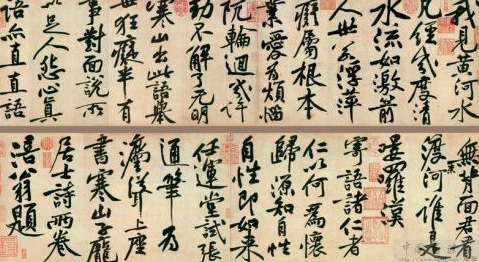 我見黃河水
凡經幾度清
水流如激箭
人世若浮萍
癡屬根本
業愛為煩惱
阬輪迴幾許
劫不解了无明
寒山出此語舉
世狂癡半有
事對面說所
以足人怨心真
語亦直直語
無背面君看
渡奈河誰是
嘍囉漢
寄語諸仁者
仁以何為懷
歸源知自性
自性即如來
任運堂試張
通筆為
灋聳上座
書寒山子龐
居士詩兩卷
涪翁題